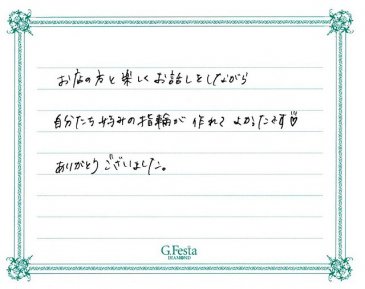 お店の方と楽しくお話しをしながら
自分たち好みの指輪が作れて よかったです♡
ありがとうございました。
G.Festa
DIAMOND